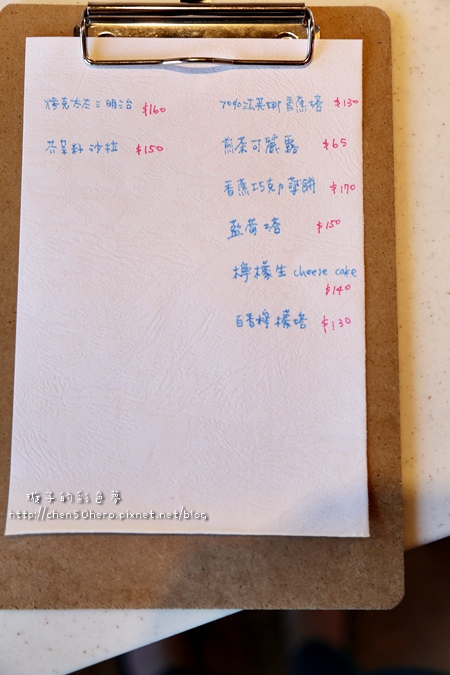 烤克太太三明治 $160
芥茉籽沙拉 $150
70%法芙娜香蕉塔 $130
煎茶可麗露 $65
香蕉巧克力薄餅 $170
藍莓塔 $150
檸檬生 cheese cake
$140
百香檸檬塔 $130
璇子的彩色夢
http://chen50hero.pixnet.net/blog